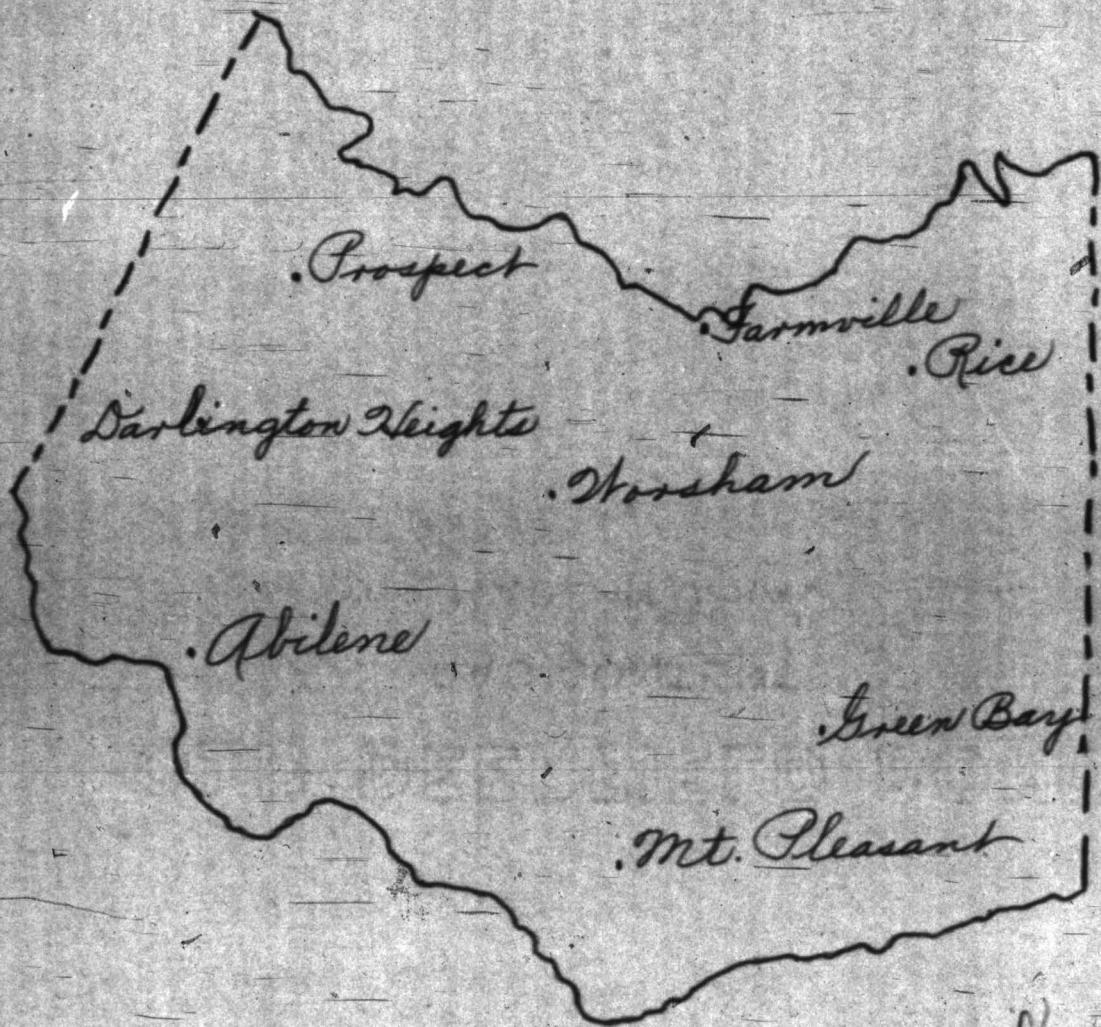 Prospect
Farmville
Rice
Darlington Heights
Worsham
Abilene
Green Bay
Mt. Pleasant
N